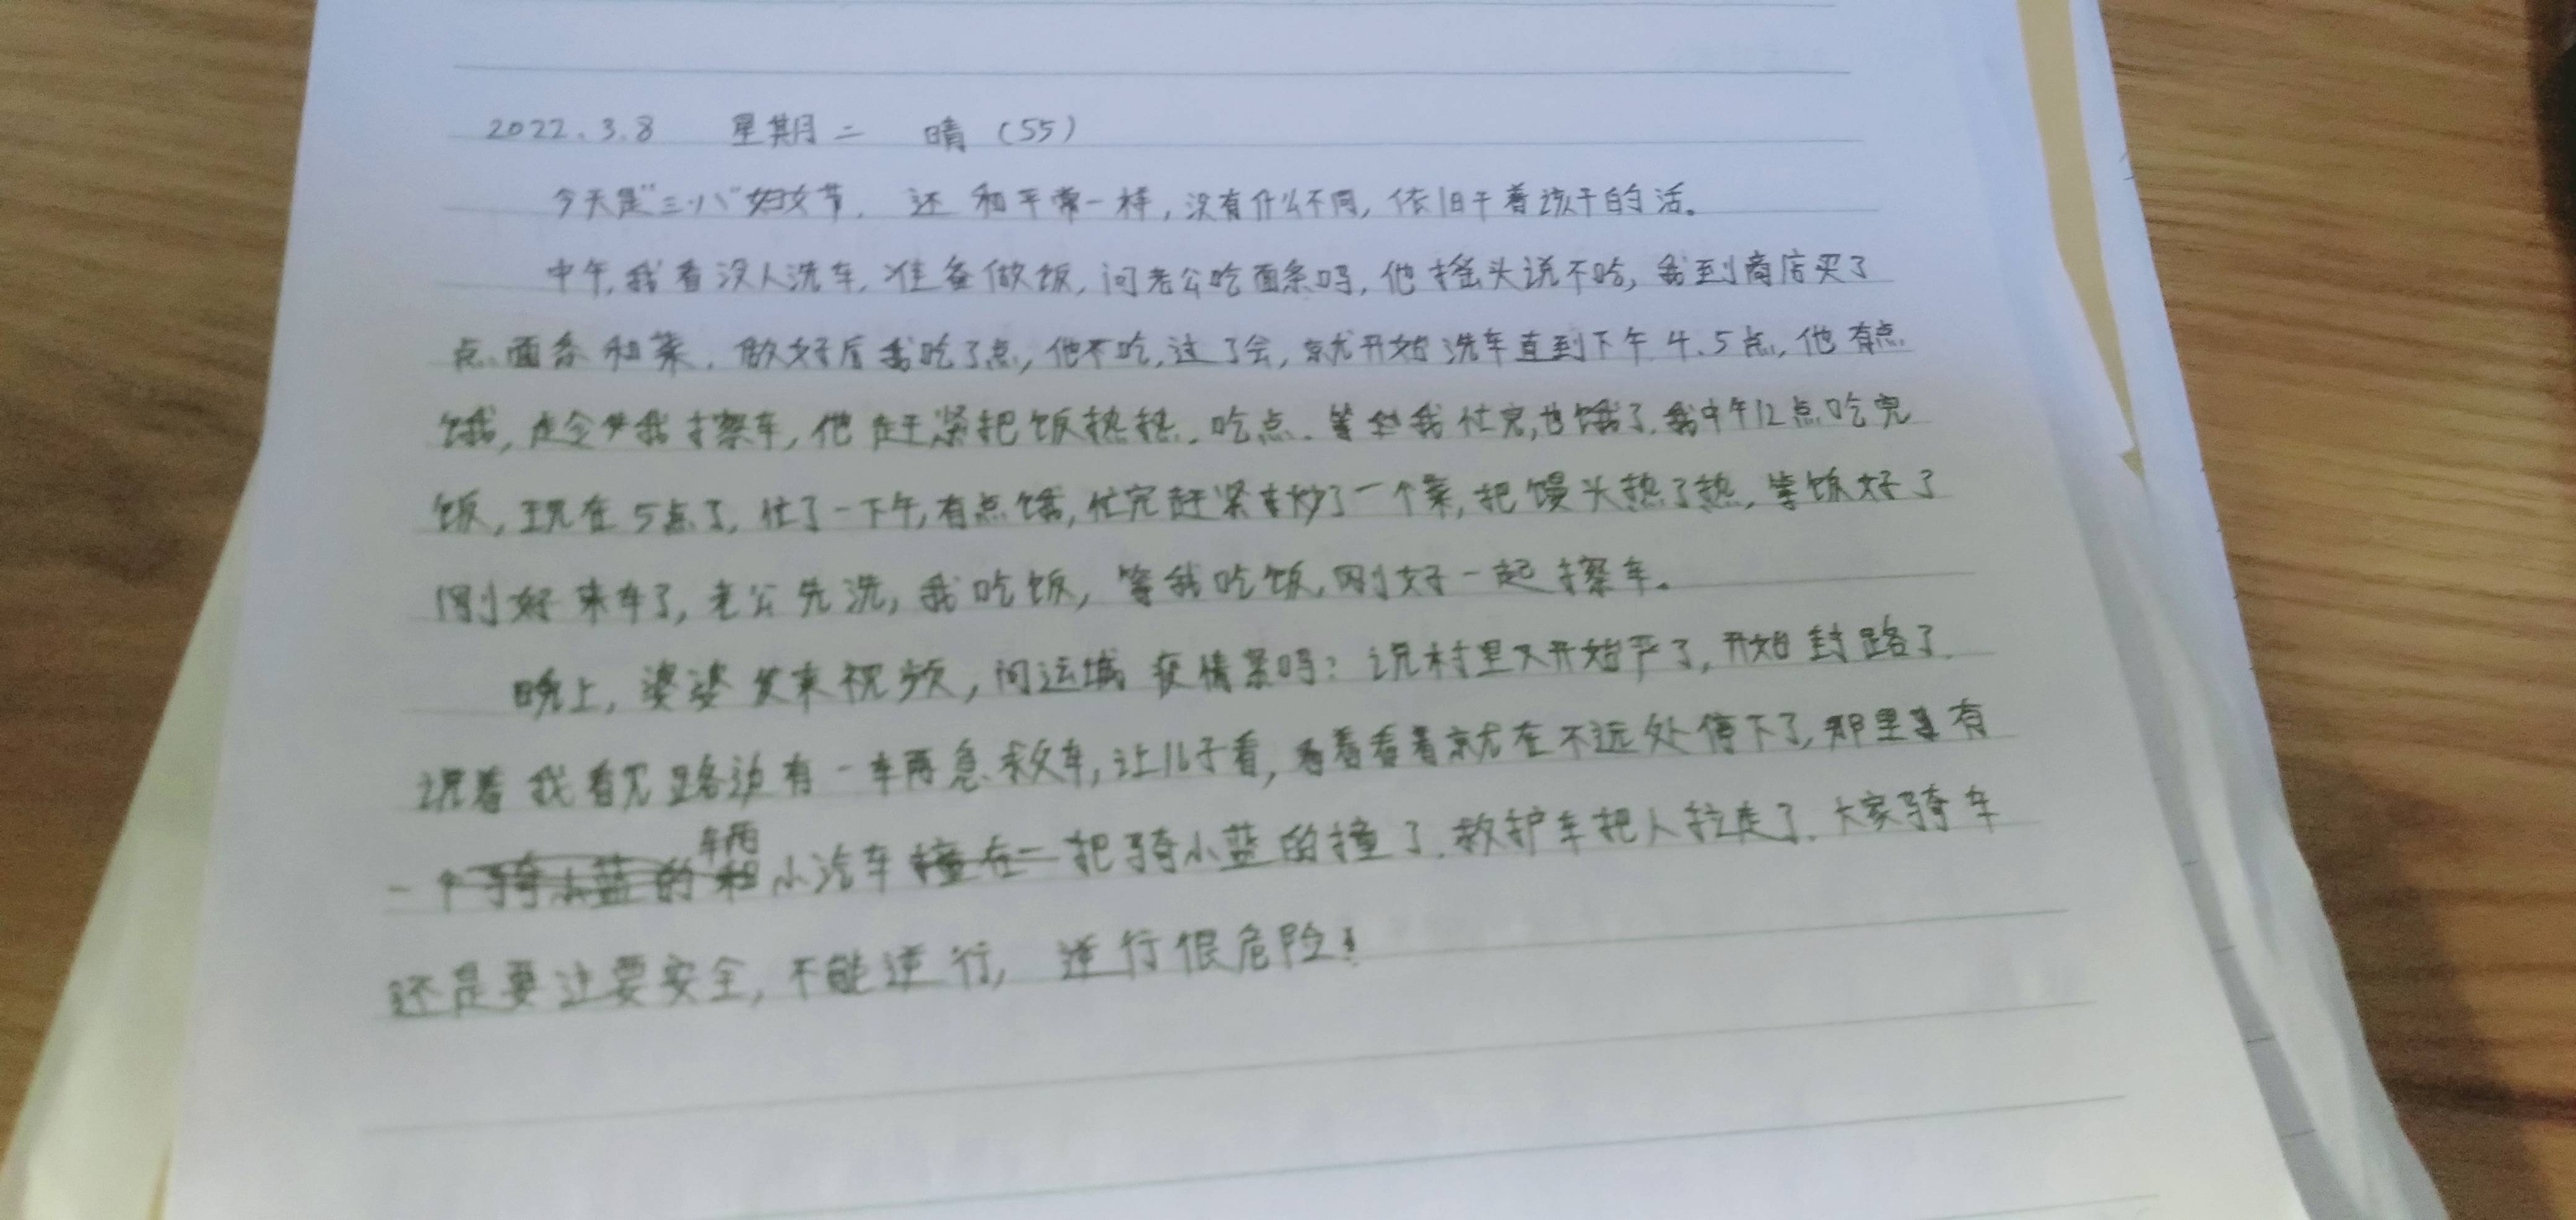 2022.3.8 星期二 晴（55）
今天是"三·八"妇女节，还和平常一样，没有什么不同，依旧干着该干的活。
中午，我看没人洗车，准备做饭，问老公吃面条吗，他摇头说不吃，我到商店买了
点面条和菜，做好后我吃了点，他不吃，过了会，就开始洗车直到下午4.5点，他有点
饿，走令我擦车，他赶紧把饭热热，吃点，等我忙完，也饿了，我中午12点吃完
饭，现在5点了，忙了一下午，有点饿，忙完赶紧去炒了一个菜，把馒头热了热，等饭好了
刚好来车了，老公先洗，我吃饭，等我吃饭，刚好一起擦车。
晚上，婆婆发来视频，问运城疫情紧吗？说村里又开始严了，开始封路了，
说着我看见路边有一车两急救车，让儿子看，看着看着就在不远处停下了，那里有
一个车两小汽车把骑小蓝的撞了，救护车把人拉走了，大家骑车
还是要注要安全，不能逆行，逆行很危险！